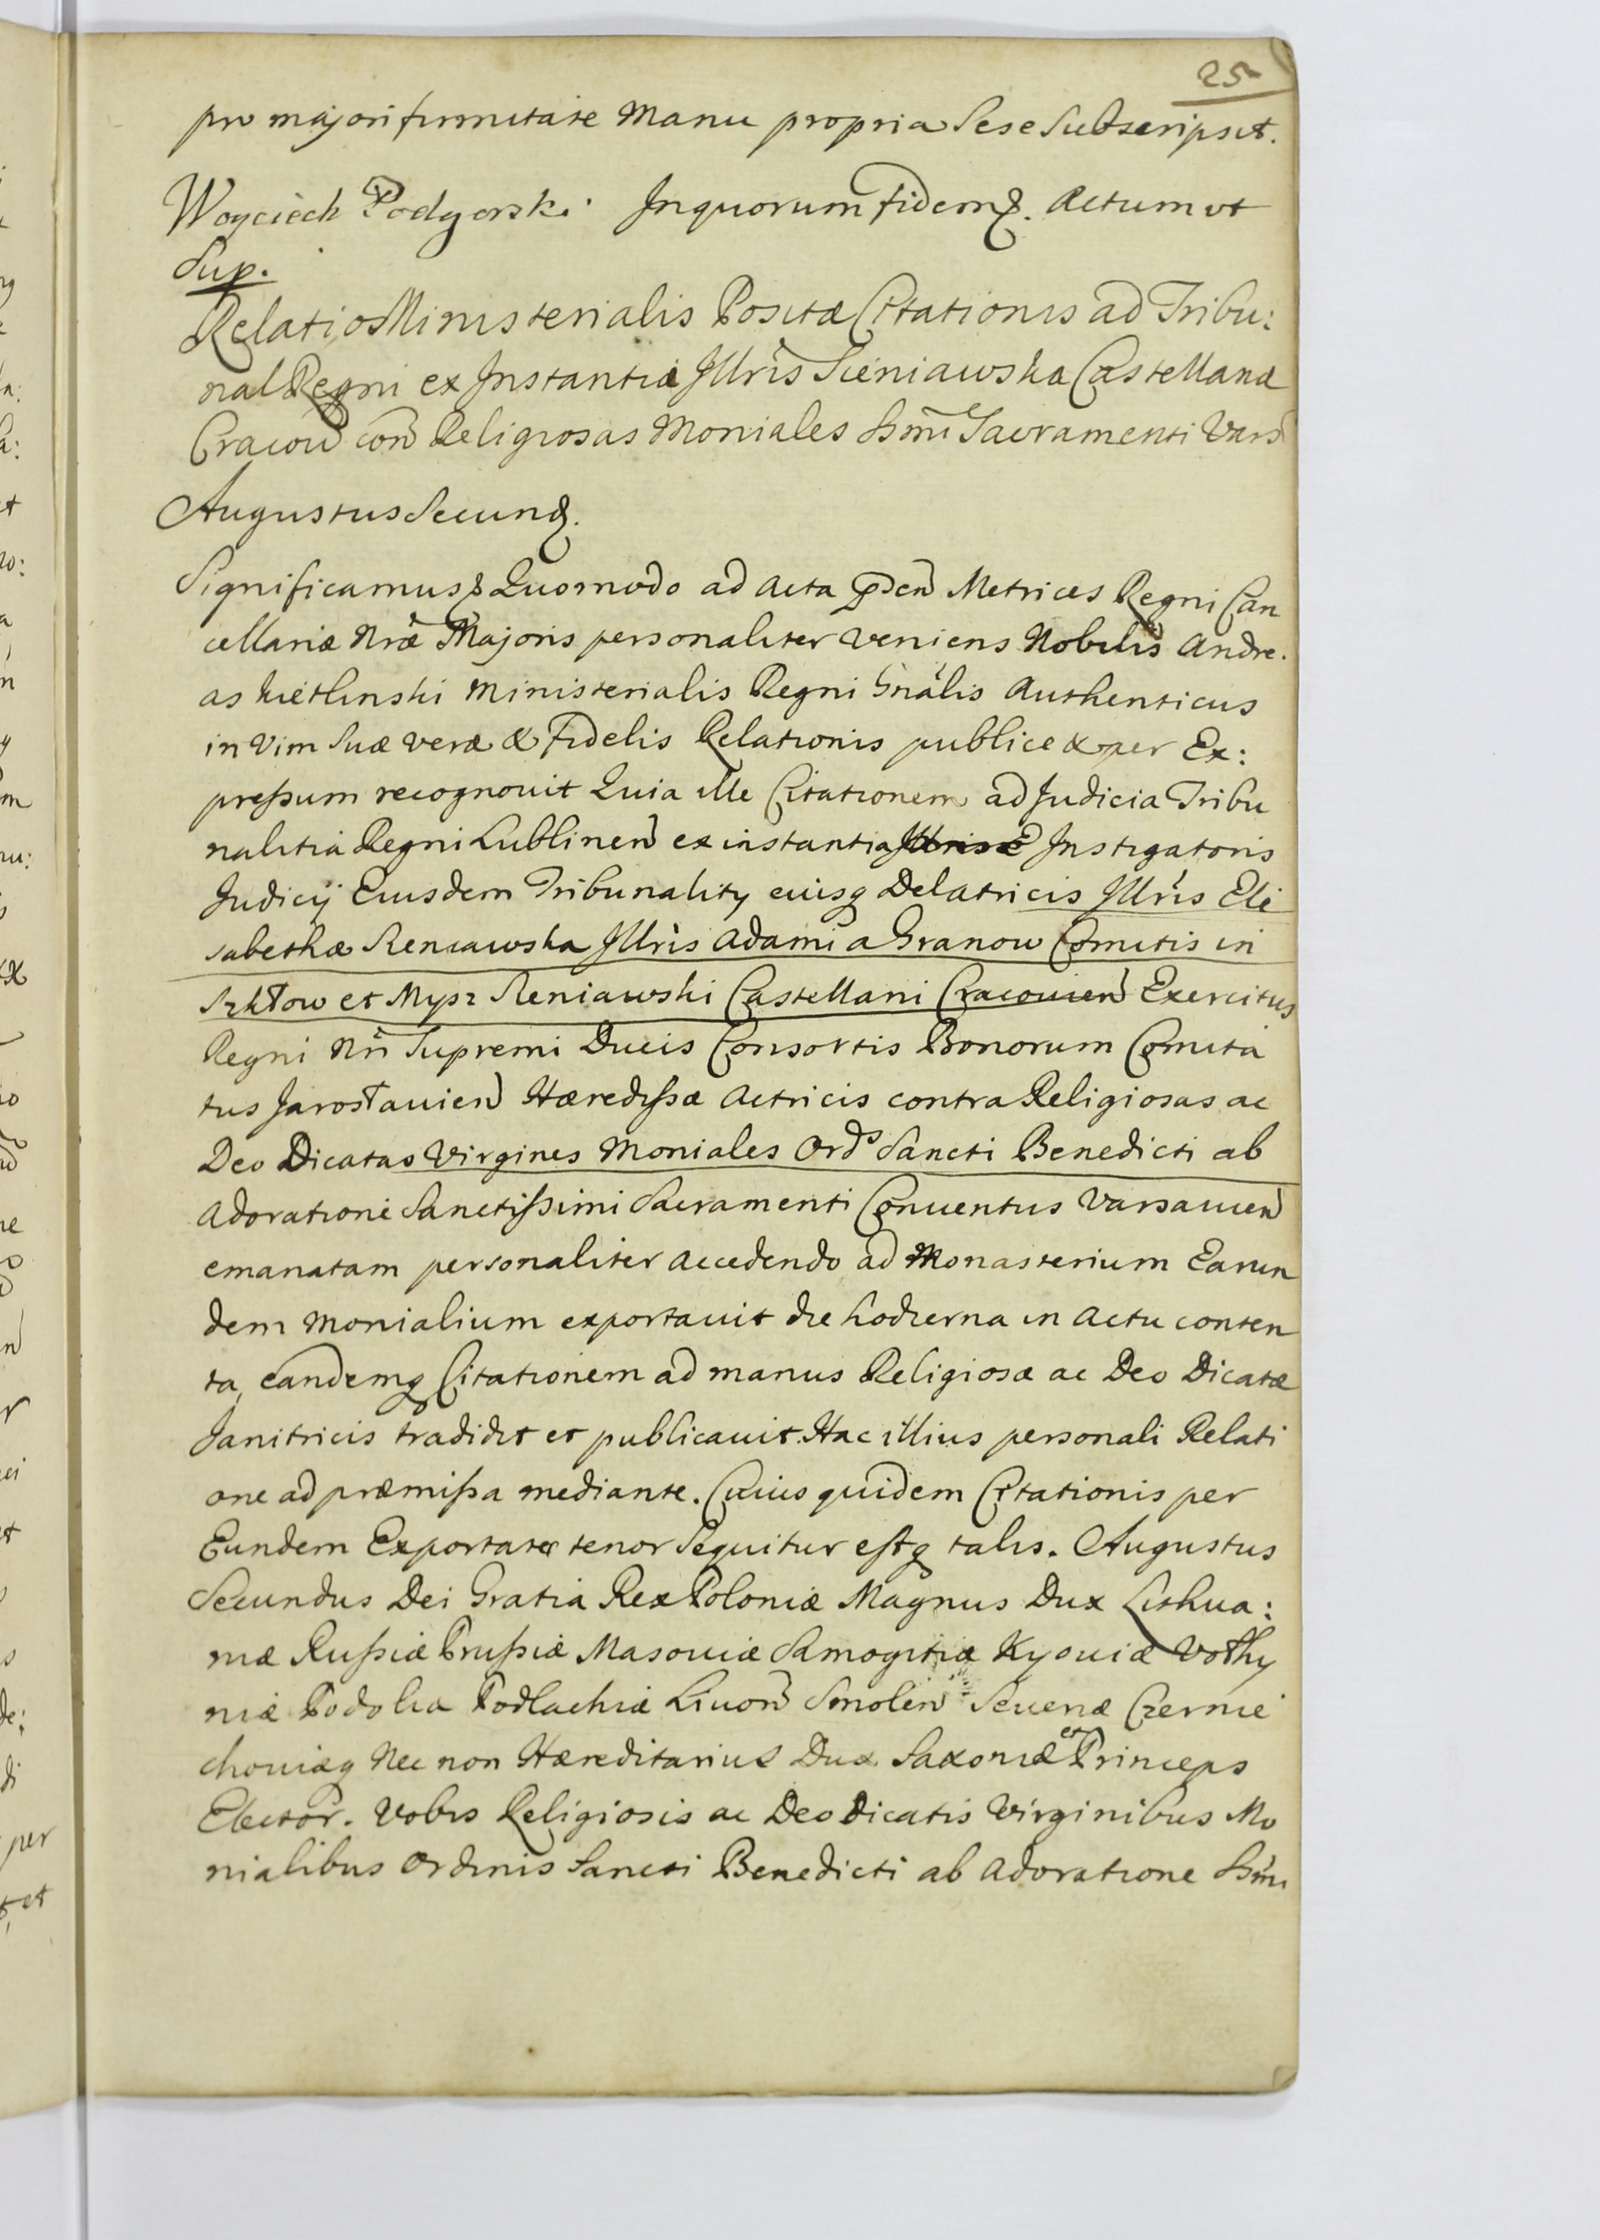 25
pro majori firmitate Manu propria Sese Subscripsit.
Woyciech Podgorski. In quorum fidem &. Actum ut
Sup.
Relatio Ministerialis Positæ Citationis ad Tribu:
nal Regni ex Instantia Illris Sieniawska Castellanæ
Cracov con Religiosas Moniales Ssmi Sacramenti Vars
Augustus Secund.
Significamus & Quomodo ad Acta pden Metrices Regni Can
cellariæ Nræ Majoris personaliter veniens Nobilis Andre.
as Kietlinski Ministerialis Regni Gnalis Authenticus
in Vim Suæ veræ & Fidelis Relationis publice & per Ex:
pressum recognovit Quia ille Citationem ad Judicia Tribu
nalitia Regni Lublinen ex instantia Instigatoris
Judicij Eiusdem Tribunality eiusq Delatricis Illris Eli
sabethæ Sieniawska Illris Adami a Granow Comitis in
Szkłow et Mysz Sieniawski Castellani Cracovien Exercitus
Regni Nri Supremi Ducis Consortis Bonorum Comita
tus Jarosławien Hæredissæ Actricis contra Religiosas ac
Deo Dicatas Virgines Moniales Ords Sancti Benedicti ab
Adoratione Sanctissimi Sacramenti Conventus Varsavien
emanatam personaliter accedendo ad Monasterium Earun
dem Monialium exportavit die hodierna in Actu conten
ta, eandemq Citationem ad manus Religiosæ ac Deo Dicatæ
Janitricis tradidit et publicavit. Hac illius personali Relati
one ad præmissa mediante. Cuius quidem Citationis per
Eundem Exportatæ tenor Sequitur estq talis. Augustus
Secundus Dei Gratia Rex Poloniæ Magnus Dux Lithua:
niæ Russiæ Prussiæ Masoviæ Samogitiæ Kyoviæ Vołhy
niæ Podoliæ Podlachiæ Livon Smolen Severiæ Czernie
choviæq Nec non Hæreditarius Dux Saxoniæ et Princeps
Elector. Vobis Religiosis ac Deo Dicatis Virginibus Mo
nialibus Ordinis Sancti Benedicti ab Adoratione Ssmi